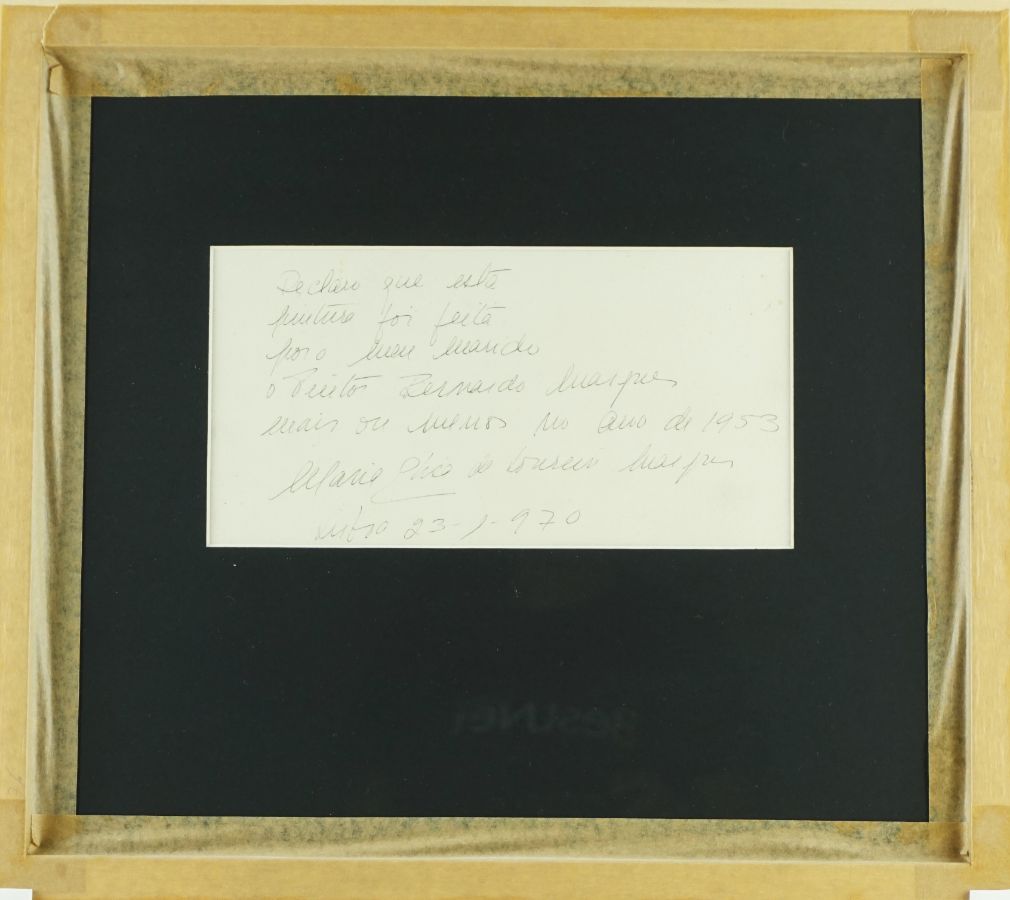 Declaro que esta
pintura foi feita
por o meu marido
o Pintor Bernardo Marques
mais ou menos no ano de 1953
Maria de Marques
23-1-970